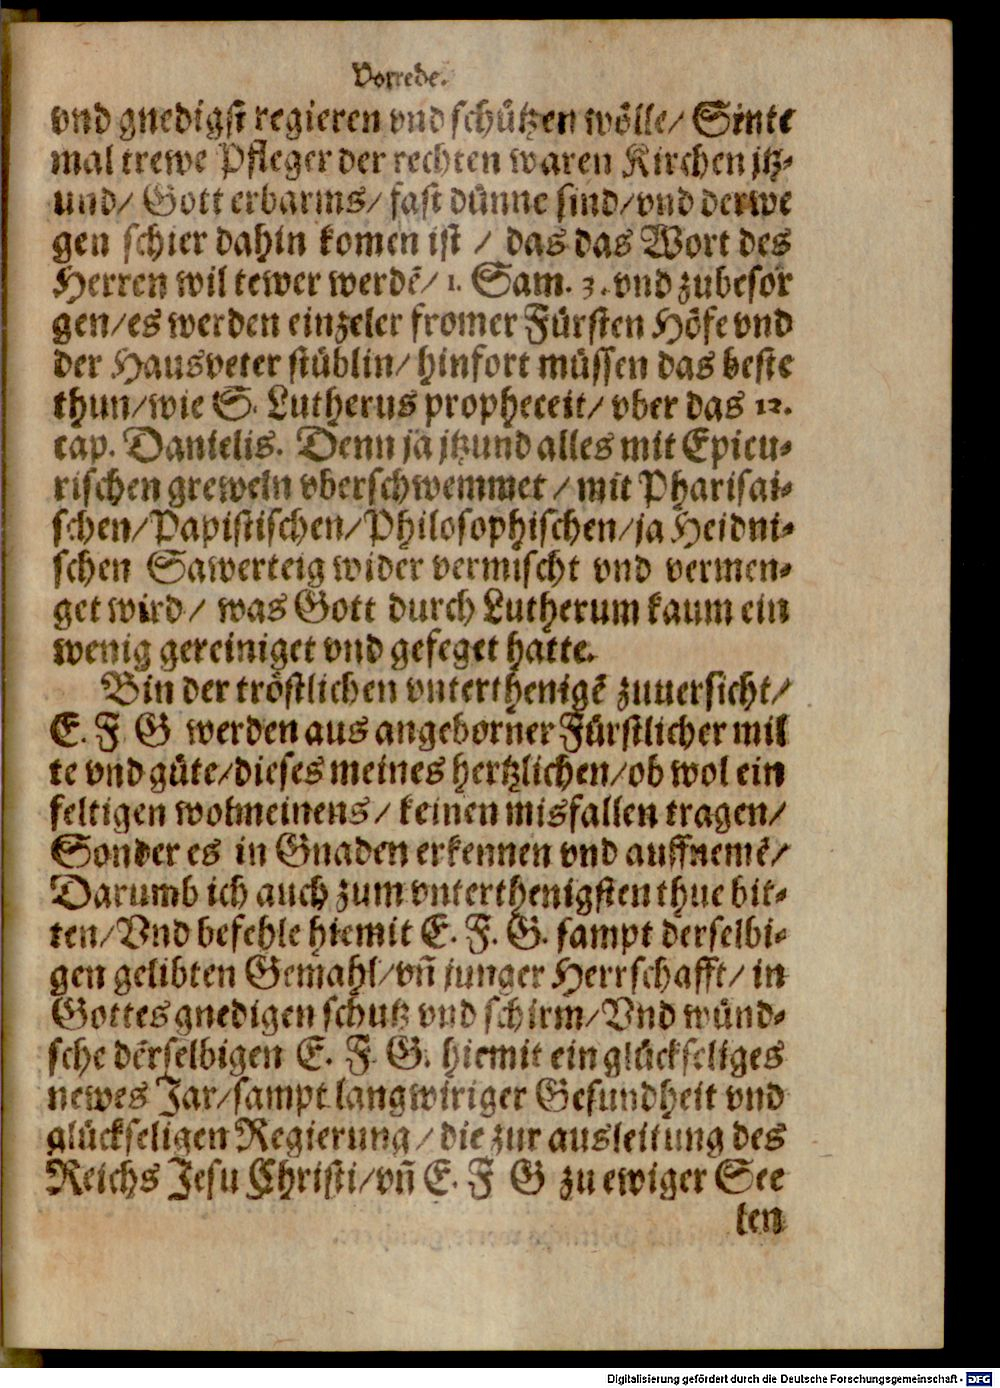 Vorrede.
vnd gnedigst regieren vnd schützen wölle/ Sinte
mal trewe Pfleger der rechten waren Kirchen jtz-
und/ Gott erbarms/ fast dünne sind/vnd derwe
gen schier dahin komen ist / das das Wort des
Herren wil tewer werdē/ 1. Sam. 3. vnd zubesor
gen/es werden einzeler fromer Fürsten Höfe vnd
der Hausveter stüblin/ hinfort müssen das beste
thun/wie S. Lutherus propheceit/ vber das 12.
cap. Danielis. Denn ja jtzund alles mit Epicu-
rischen greweln vberschwemmet / mit Pharisai-
schen/Papistischen/Philosophischen/ja Heidni-
schen Sawerteig wider vermischt vnd vermen-
get wird/ was Gott durch Lutherum kaum ein
wenig gereiniget vnd gefeget hatte.
Bin der tröstlichen vnterthenigē zuuersicht/
E. F G werden aus angeborner Fürstlicher mil
te vnd güte/dieses meines hertzlichen/ob wol ein
feltigen wolmeinens/ keinen misfallen tragen/
Sonder es in Gnaden erkennen vnd auffnemē/
Darumb ich auch zum vnterthenigsten thue bit-
ten/Vnd befehle hiemit E. F. G. sampt derselbi-
gen gelibten Gemahl/vñ junger Herrschafft/ in
Gottes gnedigen schutz vnd schirm/Vnd wünd-
sche derselbigen E. F. G. hiemit ein glückseliges
newes Jar/sampt langwiriger Gesundheit vnd
glückseligen Regierung/die zur ausleitung des
Reichs Jesu Christi/vñ E. F G zu ewiger See
len
Digitalisierung gefördert durch die Deutsche Forschungsgemeinschaft - DFG